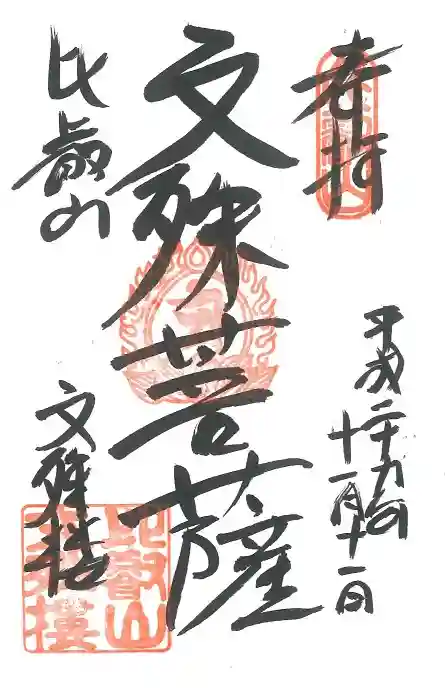 奉拝
平成二十九年
十一月十一日
文殊菩薩
比叡山
文殊楼
比叡山
文殊楼